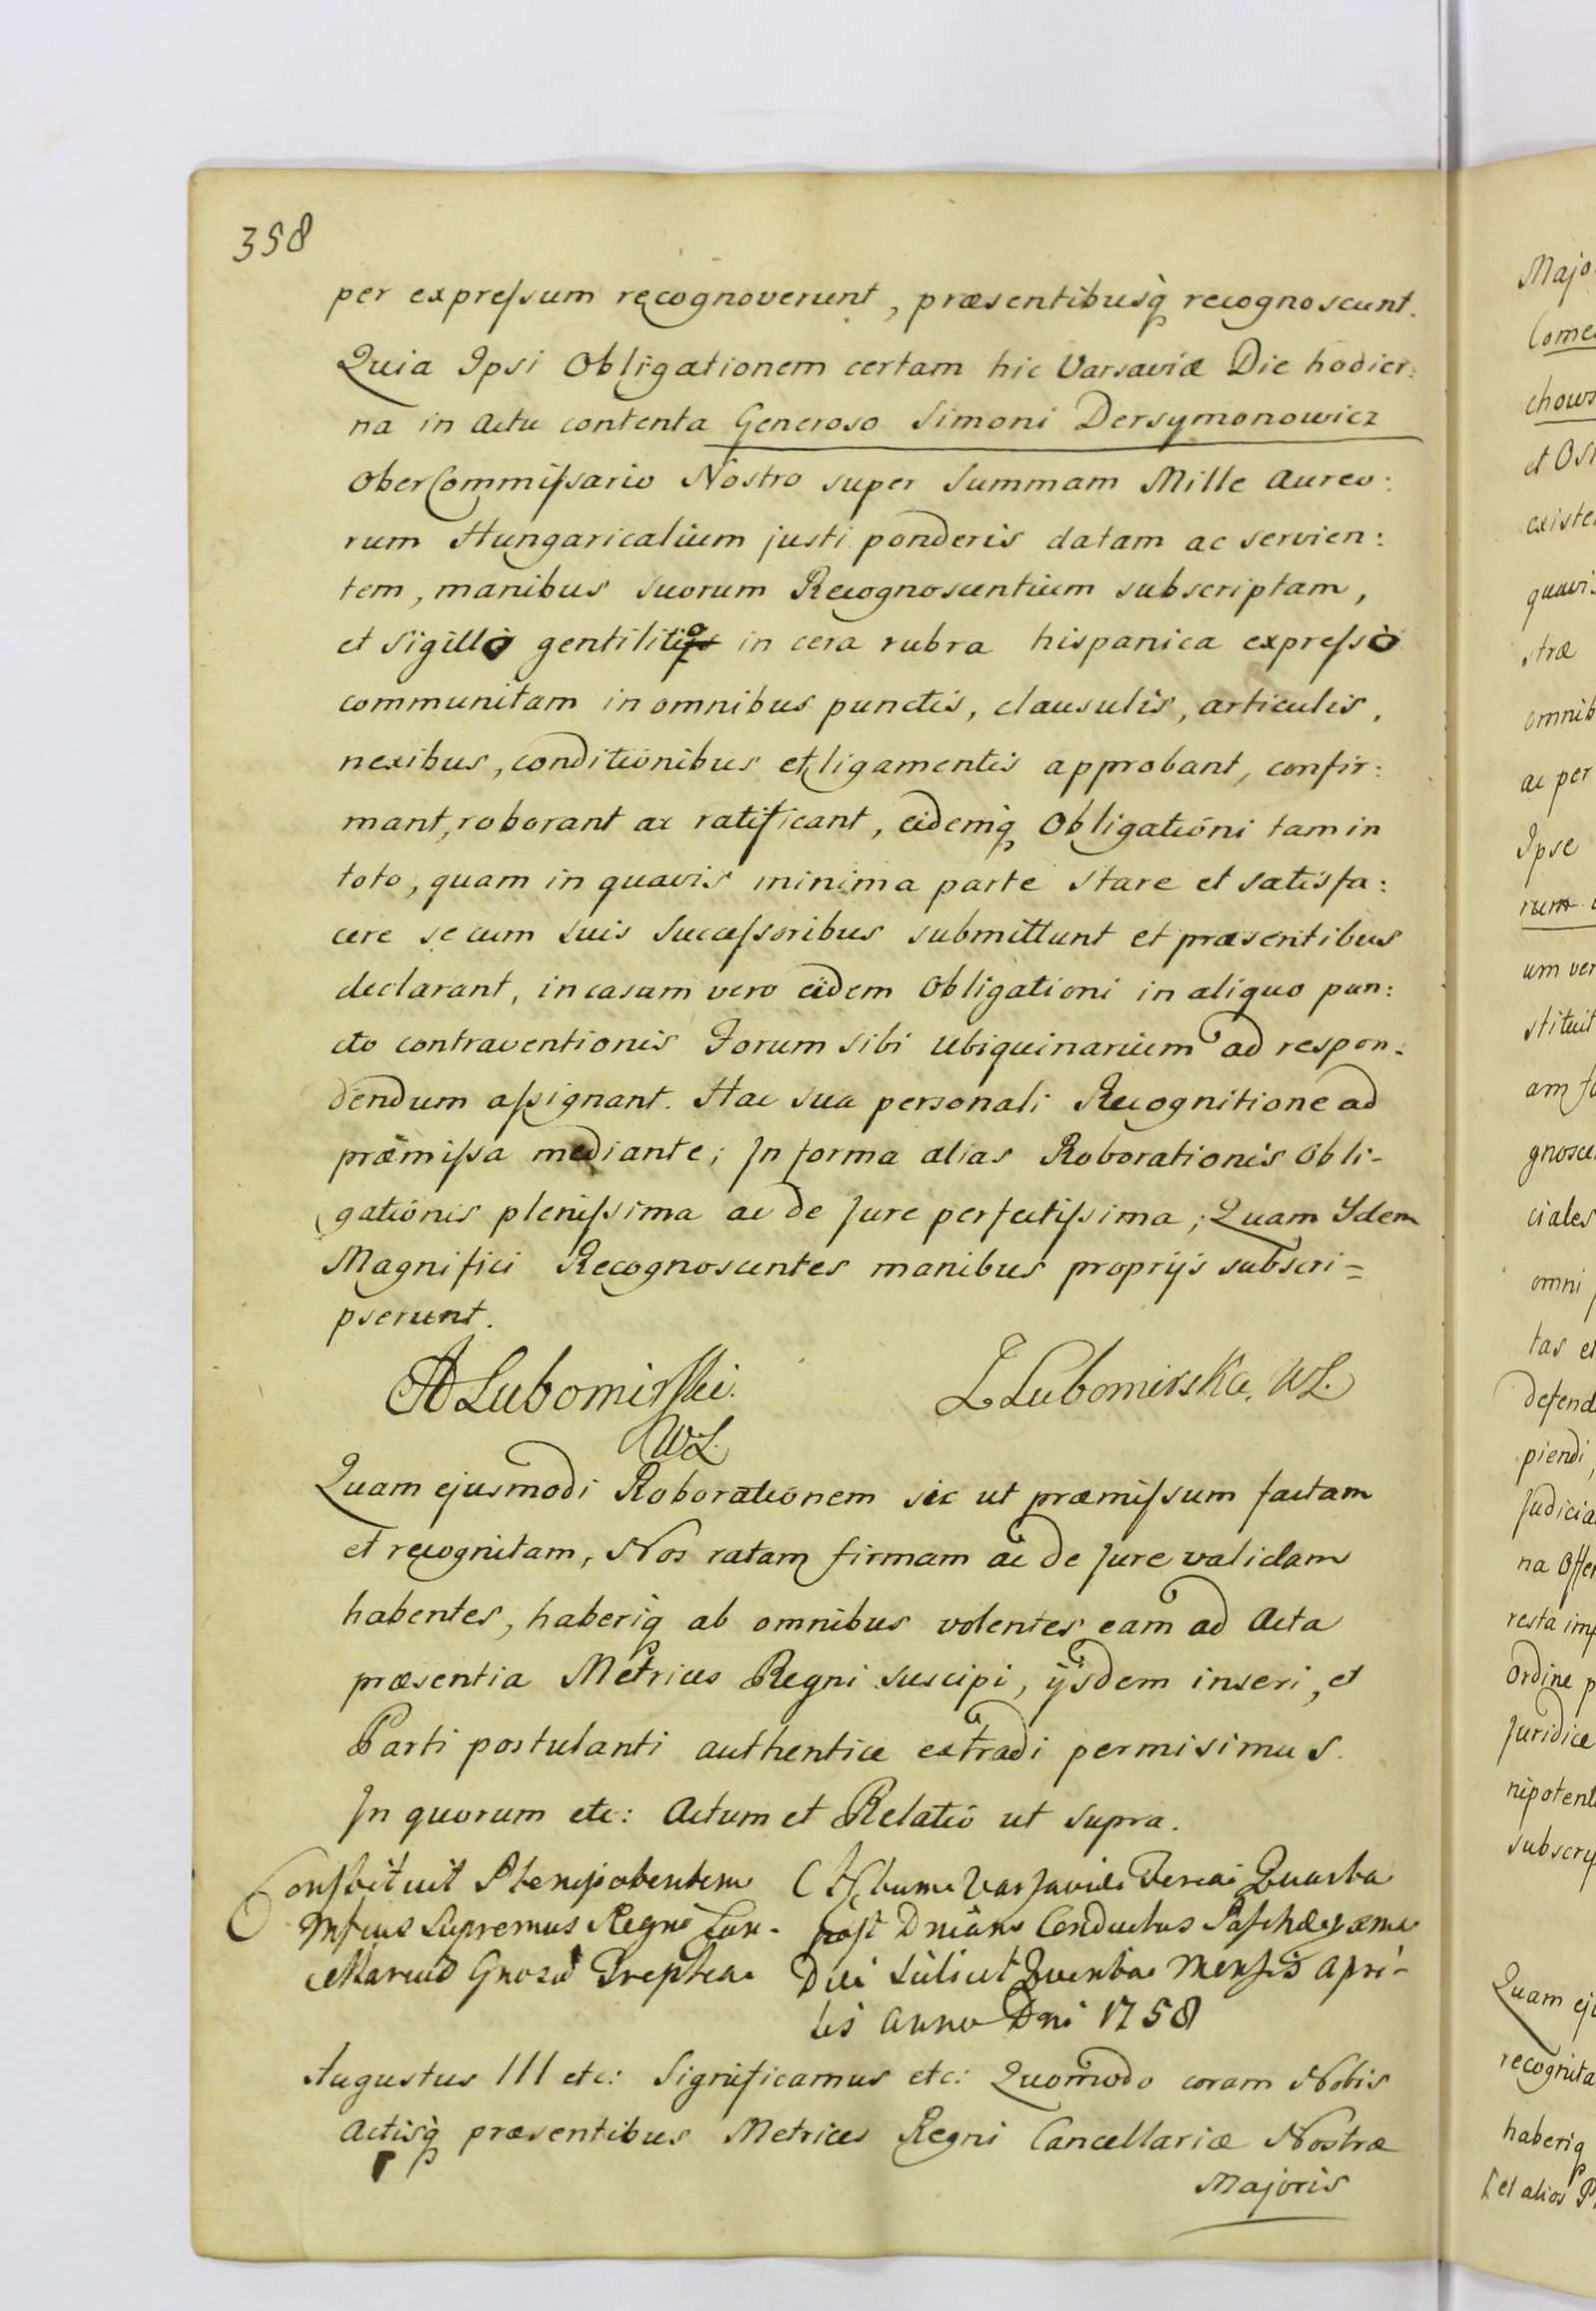 358
per expreſsum recognoverunt, præsentibusq̀ recognoscunt.
Quia Ipsi Obligationem certam hic Varsaviæ Die hodier:
na in actu contenta Generoso Simoni Dersymonowicz
OberCommiſsario Nostro super Summam Mille Aureo:
rum Hungaricalium justi ponderis datam ac servien:
tem, manibus suorum Recognoscentium subscriptam,
et Sigillo gentilitio in cera rubra hispanica expreſso
communitam in omnibus punctis, clausulis, articulis,
nexibus, conditionibus et ligamentis approbant, confir:
mant, roborant ac ratificant, eidemq̀ Obligationi tam in
toto, quam in quavis minima parte stare et satisfa:
cere se cum suis Succeſsoribus submittunt et præsentibus
declarant, in casum vero eidem Obligationi in aliquo pun:
cto contraventionis Forum sibi Ubiquinarium ad respon:
dendum aſsignant. Hac sua personali Recognitione ad
præmiſsa mediante; In forma alias Roborationis Obli-
gationis pleniſsima ac de Jure perfectiſsima; Quam Ydem
Magnifici Recognoscentes manibus proprijs subscri=
pserunt.
A Lubomirski.
WL.
L Lubomirska. WL.
Quam ejusmodi Roborationem sic ut præmiſsum factam
et recognitam, Nos ratam firmam ac de Jure validam
habentes, haberiq̀ ab omnibus volentes eam ad Acta
præsentia Metrices Regni suscipi, ijsdem inseri, et
Parti postulanti authentice extradi permisimus.
In quorum etc: Actum et Relatio ut supra.
Constituit Plenipotentem
Mfcus Supremus Regni Can-
cellarius Gnosū
Actum Varsaviæ Feria Quarta
post Dnicam Conductus Paschæ
Die scilicet Quinta Mensis Apri-
lis Anno Dni 1758
Augustus III etc: Significamus etc: Quomodo coram Nobis
Actisq̀ præsentibus Metrices Regni Cancellariæ Nostræ
Majoris
Majo
Come
chows
et
existe
quavis
stræ
omnib
ac per
Ipse
rum
um ver
stituit
am
gnosce
ciales
omni
tas et
defend
piendi,
Judicia
na
resta imp
Ordine p
Juridice
nipotent
subscr
Quam ej
recognita
haberiq̀
et alios